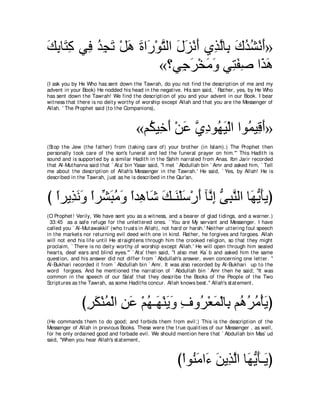 «أَنْشُدُكَ بِالَّذِي أَنْزَلَ التَّوْرَاةَ هَلْ تَجِدُ فِي كِتَابِكَ
هَذَا صِفَتِي وَمَخْرَجِي؟»
(I ask you by He Who has sent down the Tawrah, do you not find the description of me and my
advent in your Book) He nodded his head in the negative. His son said, ` Rather, yes, by He Who
has sent down the Tawrah! We find the description of you and your advent in our Book. I bear
witness that there is no deity worthy of worship except Allah and that you are the Messenger of
Allah. ' The Prophet said (to the Companions),
«أَقِيمُوا الْيَهُودِيَّ عَنْ أَخِيكُم»
(Stop the Jew (the father) from (taking care of) your brother (in Islam).) The Prophet then
personally took care of the son's funeral and led the funeral prayer on him.'" This Hadith is
sound and is supported by a similar Hadith in the Sahih narrated from Anas. Ibn Jarir recorded
that Al-Muthanna said that ` Ata' bin Yasar said, "I met ` Abdullah bin ` Amr and asked him, ` Tell
me about the description of Allah's Messenger in the Tawrah.' He said, ` Yes, by Allah! He is
described in the Tawrah, just as he is described in the Qur'an,
(يأَيُّهَا النَّبِىُّ إِنَّآ أَرْسَلْنَـكَ شَاهِداً وَمُبَشِّراً وَنَذِيراً )
(O Prophet! Verily, We have sent you as a witness, and a bearer of glad tidings, and a warner.)
33:45  as a safe refuge for the unlettered ones. ` You are My servant and Messenger. I have
called you ` Al-Mutawakkil' (who trusts in Allah), not hard or harsh.' Neither uttering foul speech
in the markets nor returning evil deed with one in kind. Rather, he forgives and forgoes. Allah
will not end his life until He straightens through him the crooked religion, so that they might
proclaim, ` There is no deity worthy of worship except Allah.' He will open through him sealed
hearts, deaf ears and blind eyes.'" ` Ata' then said, "I also met Ka` b and asked him the same
question, and his answer did not differ from ` Abdullah's answer, even concerning one letter. "
Al-Bukhari recorded it from ` Abdullah bin ` Amr. It was also recorded by Al-Bukhari  up to the
word  forgoes. And he mentioned the narration of ` Abdullah bin ` Amr then he said; "It was
common in the speech of our Salaf that they describe the Books of the People of the Two
Scriptures as the Tawrah, as some Hadiths concur. Allah knows best." Allah's statement,
(يَأْمُرُهُم بِالْمَعْرُوفِ وَيَنْهَـهُمْ عَنِ الْمُنْكَرِ)
(He commands them to do good; and forbids them from evil;) This is the description of the
Messenger of Allah in previous Books. These were the true qualities of our Messenger , as well,
for he only ordained good and forbade evil. We should mention here that ` Abdullah bin Mas` ud
said, "When you hear Allah's statement,
(يَـأَيُّهَا الَّذِينَ ءَامَنُواْ)